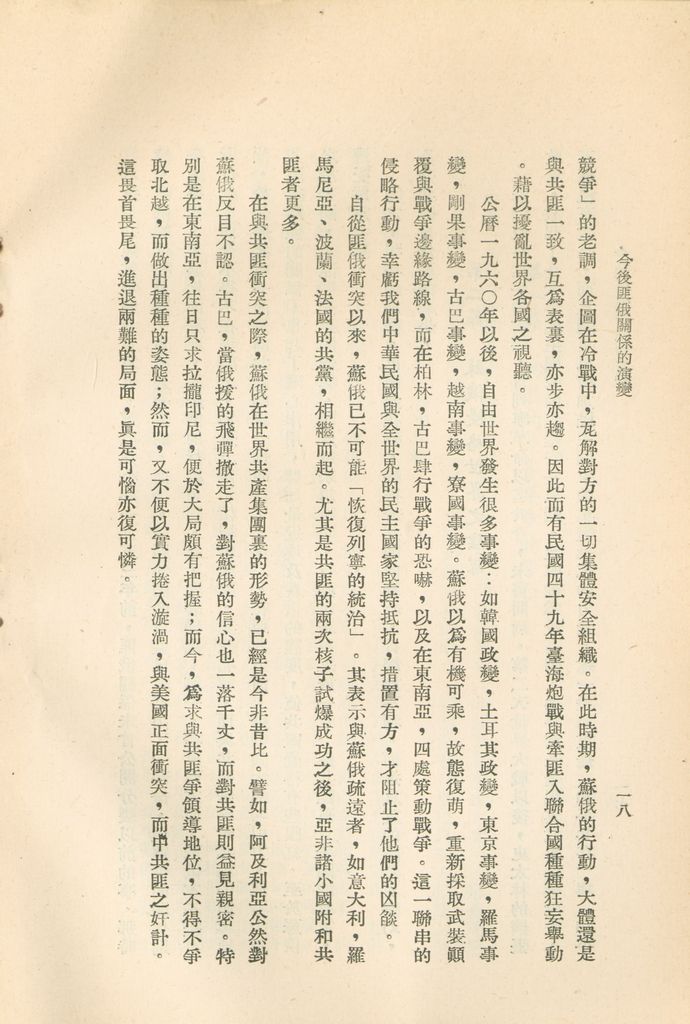 今後匪俄關係的演變
一八
競爭」的老調，企圖在冷戰中，瓦解對方的一切集體安全組織。在此時期，蘇俄的行動，大體還是
與共匪一致，互爲表裏，亦步亦趨。因此而有民國四十九年臺海炮戰與牽匪入聯合國種種狂妄舉動
。藉以擾亂世界各國之視聽。
公曆一九六〇年以後，自由世界發生很多事變：如韓國政變，土耳其政變，東京事變，羅馬事
變，剛果事變，古巴事變，越南事變，寮國事變。蘇俄以爲有機可乘，故態復萌，重新採取武裝顚
覆與戰爭邊緣路線，而在柏林，古巴肆行戰爭的恐嚇，以及在東南亞，四處策動戰爭。這一聯串的
侵略行動，幸虧我們中華民國與全世界的民主國家堅持抵抗，措置有方，才阻止了他們的凶燄。
自從匪俄衝突以來，蘇俄已不可能「恢復列寧的統治」。其表示與蘇俄疏遠者，如意大利，羅
馬尼亞、波蘭、法國的共黨，相繼而起。尤其是共匪的兩次核子試爆成功之後，亞非諸小國附和共
匪者更多。
在與共匪衝突之際，蘇俄在世界共產集團裏的形勢，已經是今非昔比。譬如，阿及利亞公然對
蘇俄反目不認。古巴，當俄援的飛彈撤走了，對蘇俄的信心也一落千丈，而對共匪則益見親密。特
別是在東南亞，往日只求拉攏印尼，便於大局頗有把握；而今，爲求與共匪爭領導地位，不得不爭
取北越，而做出種種的姿態；然而，又不便以實力捲入漩渦，與美國正面衝突，而中共匪之奸計。
這畏首畏尾，進退兩難的局面，眞是可惱亦復可憐。